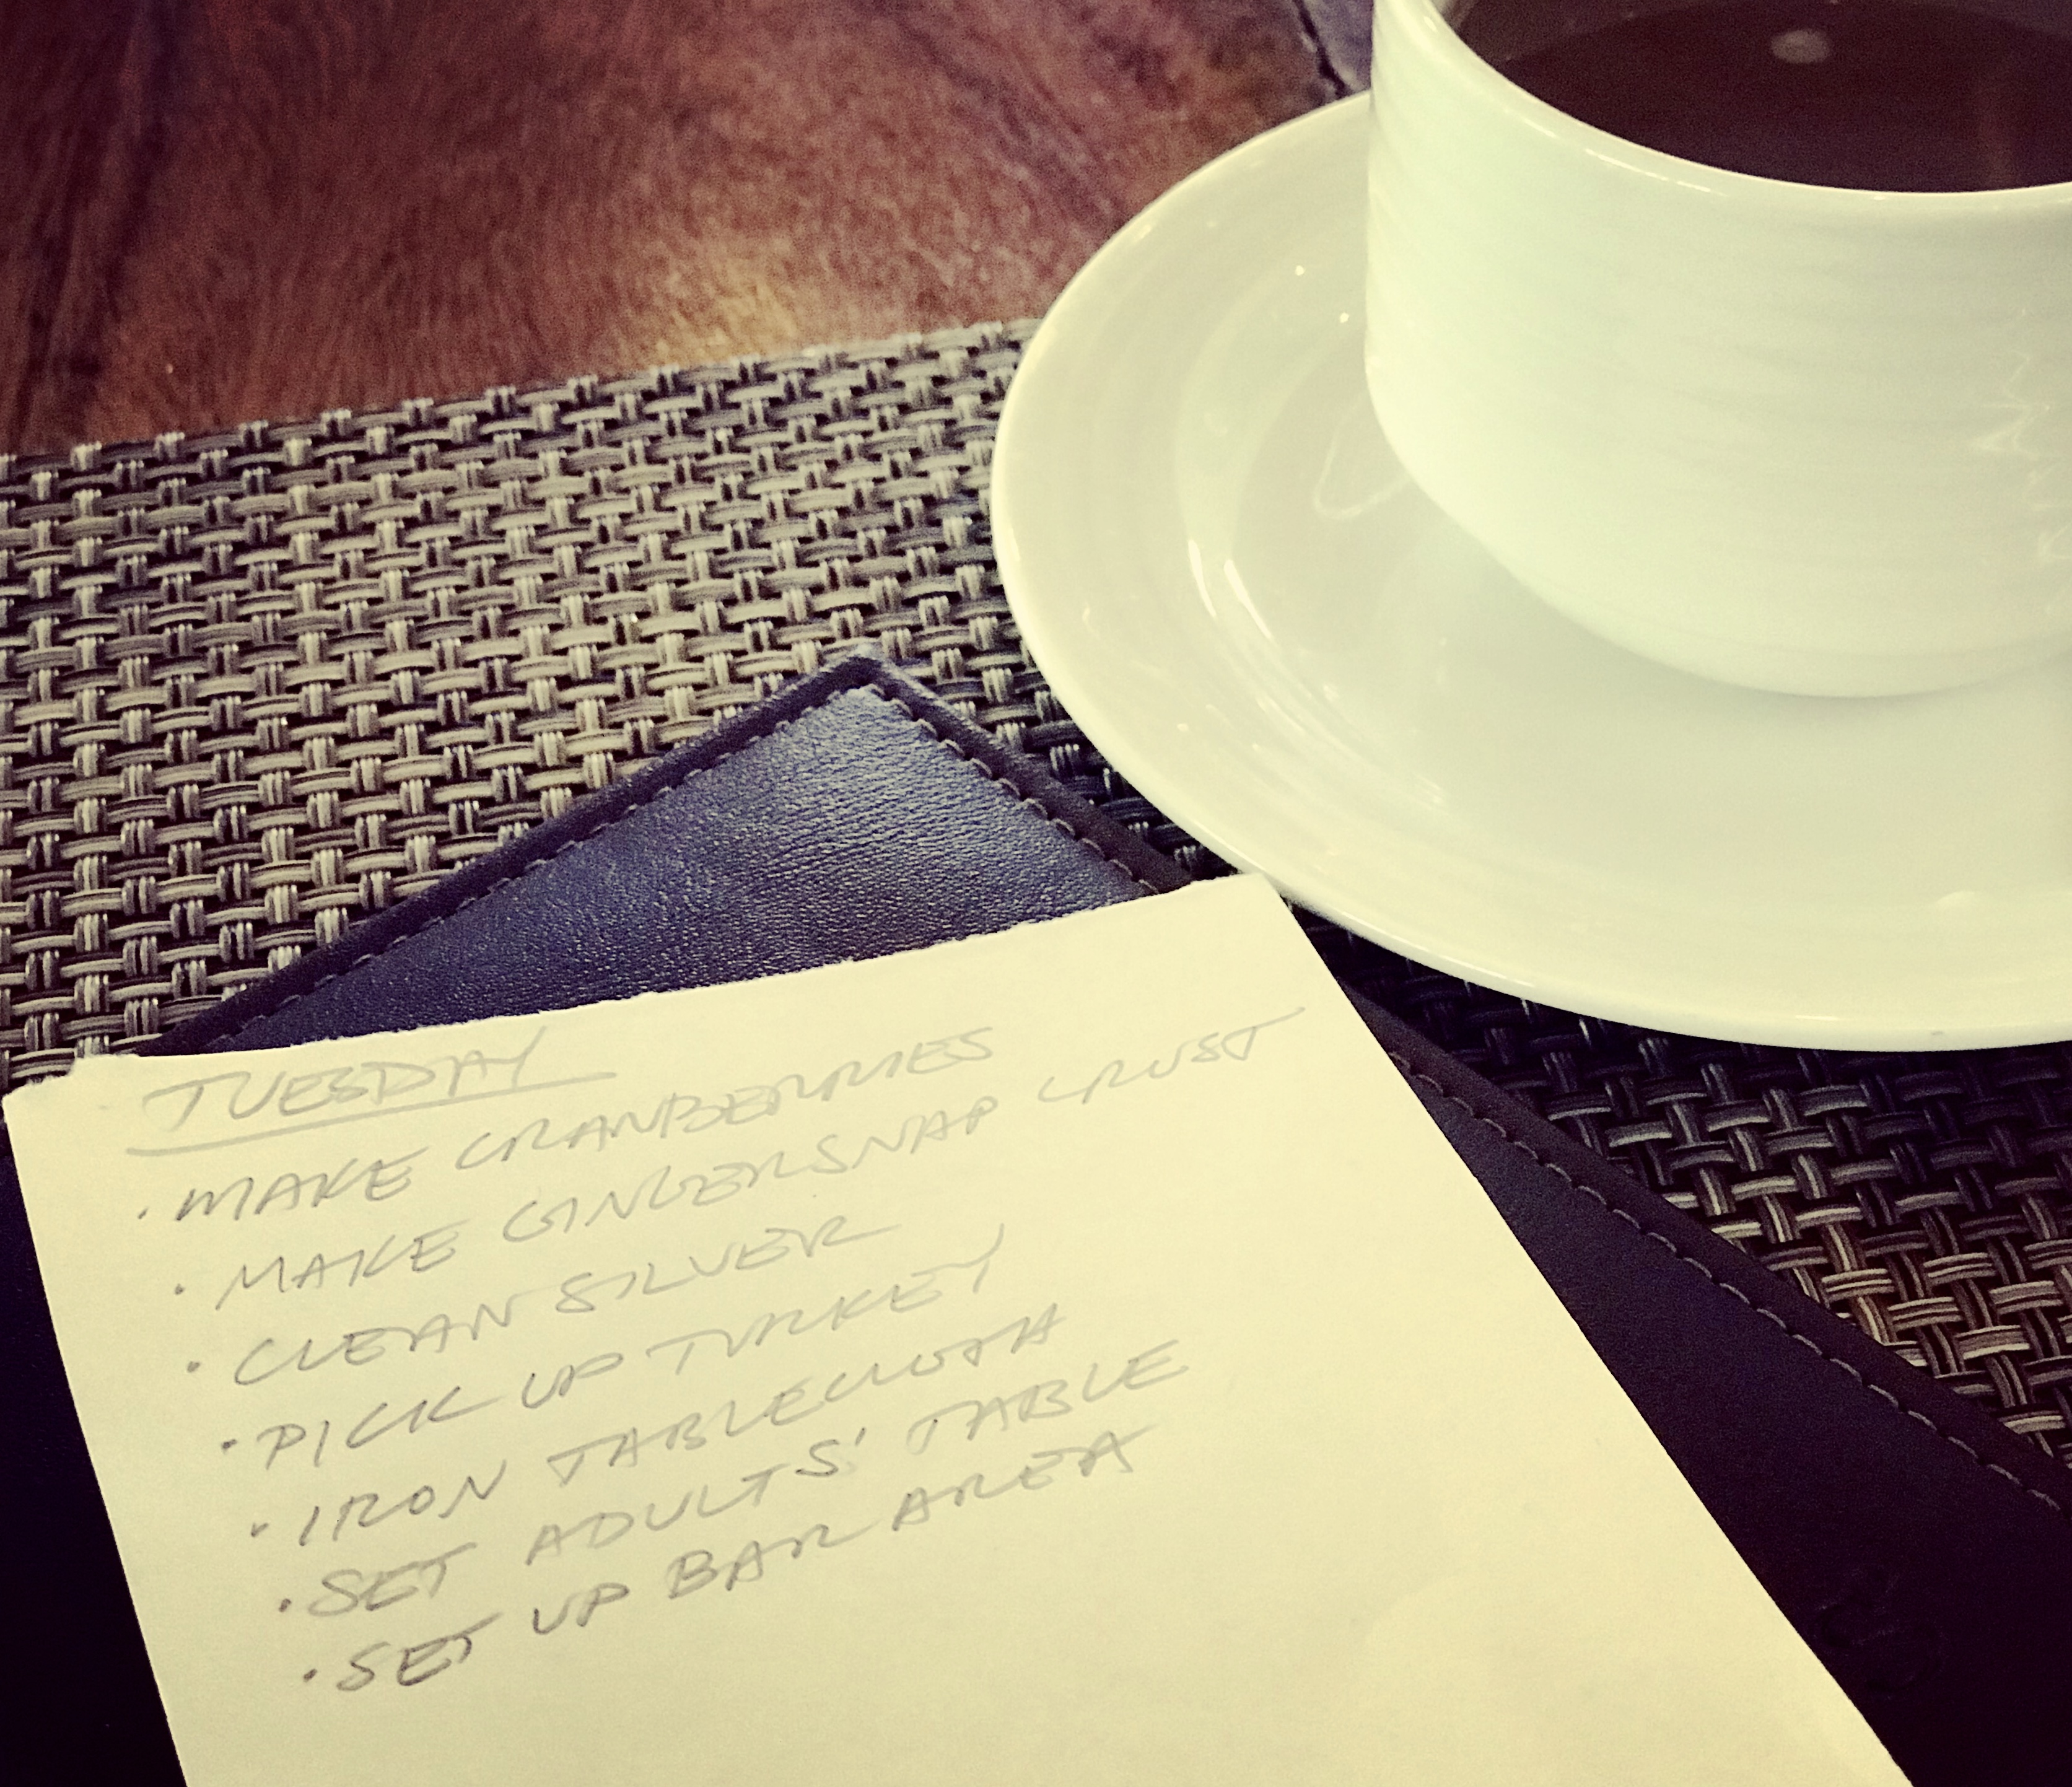 TUESDAY
· MAKE CRANBERRIES
· MAKE GINGERSNAP CRUST
· CLEAN SILVER
· PICK UP TURKEY
· IRON TABLECLOTH
· SET ADULTS' TABLE
· SET UP BAR AREA